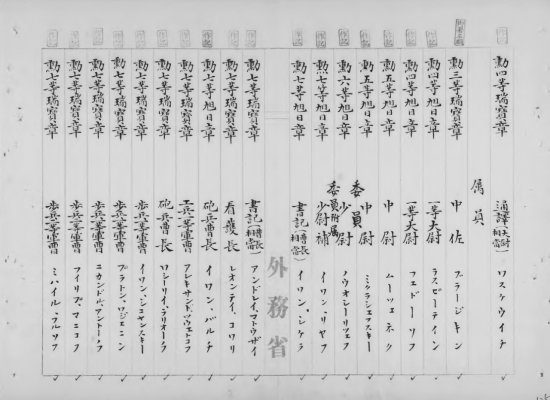 勲四等瑞寳章 通譯(大尉相當) ワスケウイチ
属員
勲三等旭日章 中佐 ブラージキン
勲四等旭日章 一等大尉 ラスピーテイン
勲四等旭日章 一等大尉 フエドーソフ
勲五等旭日章 中尉 ムーツエネク
勲五等旭日章 中尉 ミクラシエフスキー
委員
勲六等旭日章 少尉 ノウオシーリツエフ
委員附属
勲七等旭日章 少尉補 イワン、リヤフ
勲七等旭日章 書記(曹長相當) イワン、シケラ
外務省
勲七等瑞寳章 書記(曹長相當) アンドレイ、マトウザイ
勲七等瑞寳章 看護長 レオンテイ、コワリ
勲七等旭日章 砲兵曹長 イワン、バルチ
勲七等瑞寳章 工兵一等軍曹 アレキサンドル、ツウエトコフ
勲七等瑞寳章 砲兵曹長 ワシーリイ、ラリオーク
勲七等瑞寳章 歩兵一等軍曹 イワン、シコワンスキー
勲七等瑞寳章 歩兵二等軍曹 プラトン、ワジエニン
勲七等瑞寳章 歩兵二等軍曹 ニカンドル、アントーノフ
勲七等瑞寳章 歩兵二等軍曹 フイリプ、マニコフ
勲七等瑞寳章 歩兵二等軍曹 ミハイル、フルソフ